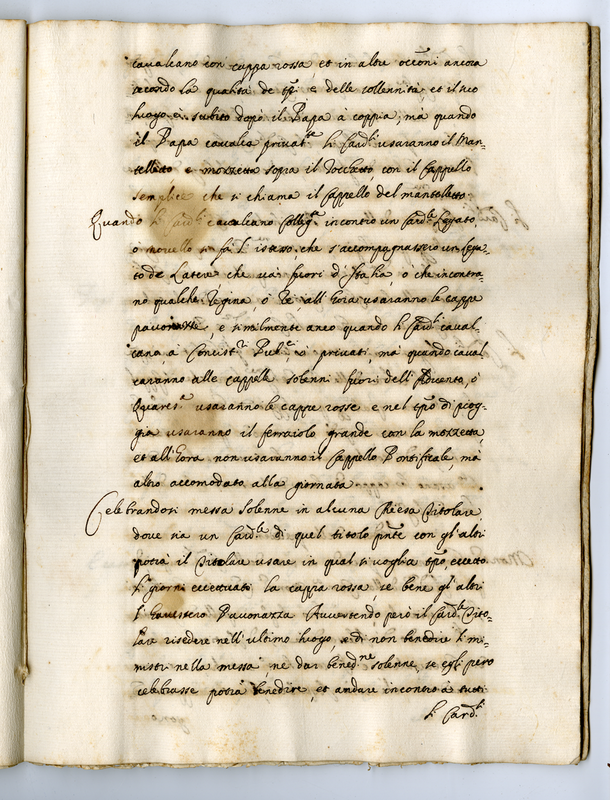 cavalcano con cappa rossa et in altre occ.ni ancora
secondo la qualità de tpi e delle sollennità, et il suo
luogo è subito dopo il Papa à coppia; mà quando
il Papa cavalca privat.te li Card.li usaranno il Man-
telletto e mozzetta sopra il Rocchetto, con il Cappello
semplice che si chiama il Cappello del mantelletto.
Quando li Card.li cavalcano Colleg.te incontro un Card.le Legato,
o novello si fà l'istesso, che s'accompagnassero un Lega-
to de Latere che và fuori d'Italia, o che incontra-
no qualche Regina, ò Rè, all'hora usaranno le cappe
pavonazze, e similmente anco quando li Card.li caval-
cano à Concist.ri Publ.ci ò privati, mà quando caval
caranno alle cappelle solenni fuori dell'Advento, ò
Quares.a usaranno le cappe rosse e nel tpo di piog-
gia usaranno il ferraiolo grande con la mozzetta,
et all'hora non usaranno il Cappello Pontificale, mà
altro accomodato alla giornata
Celebrandosi messa solenne in alcuna Chiesa Titolare
dove sia un Card.le di quel titolo pnte con gl'altri
potrà il Titolare usare in qual si voglia tpo, eccetto
li giorni eccettuati la cappa rossa, se bene gl'altri
l'havessero Pavonazza Avvertendo però il Card.le Tito-
lare risedere nell'ultimo luogo, e di non benedire li mi-
nistri nella messa ne dar bened.ne solenne, se egli però
celebrasse potrà benedire, et andare incontro à tutti
li Card.li